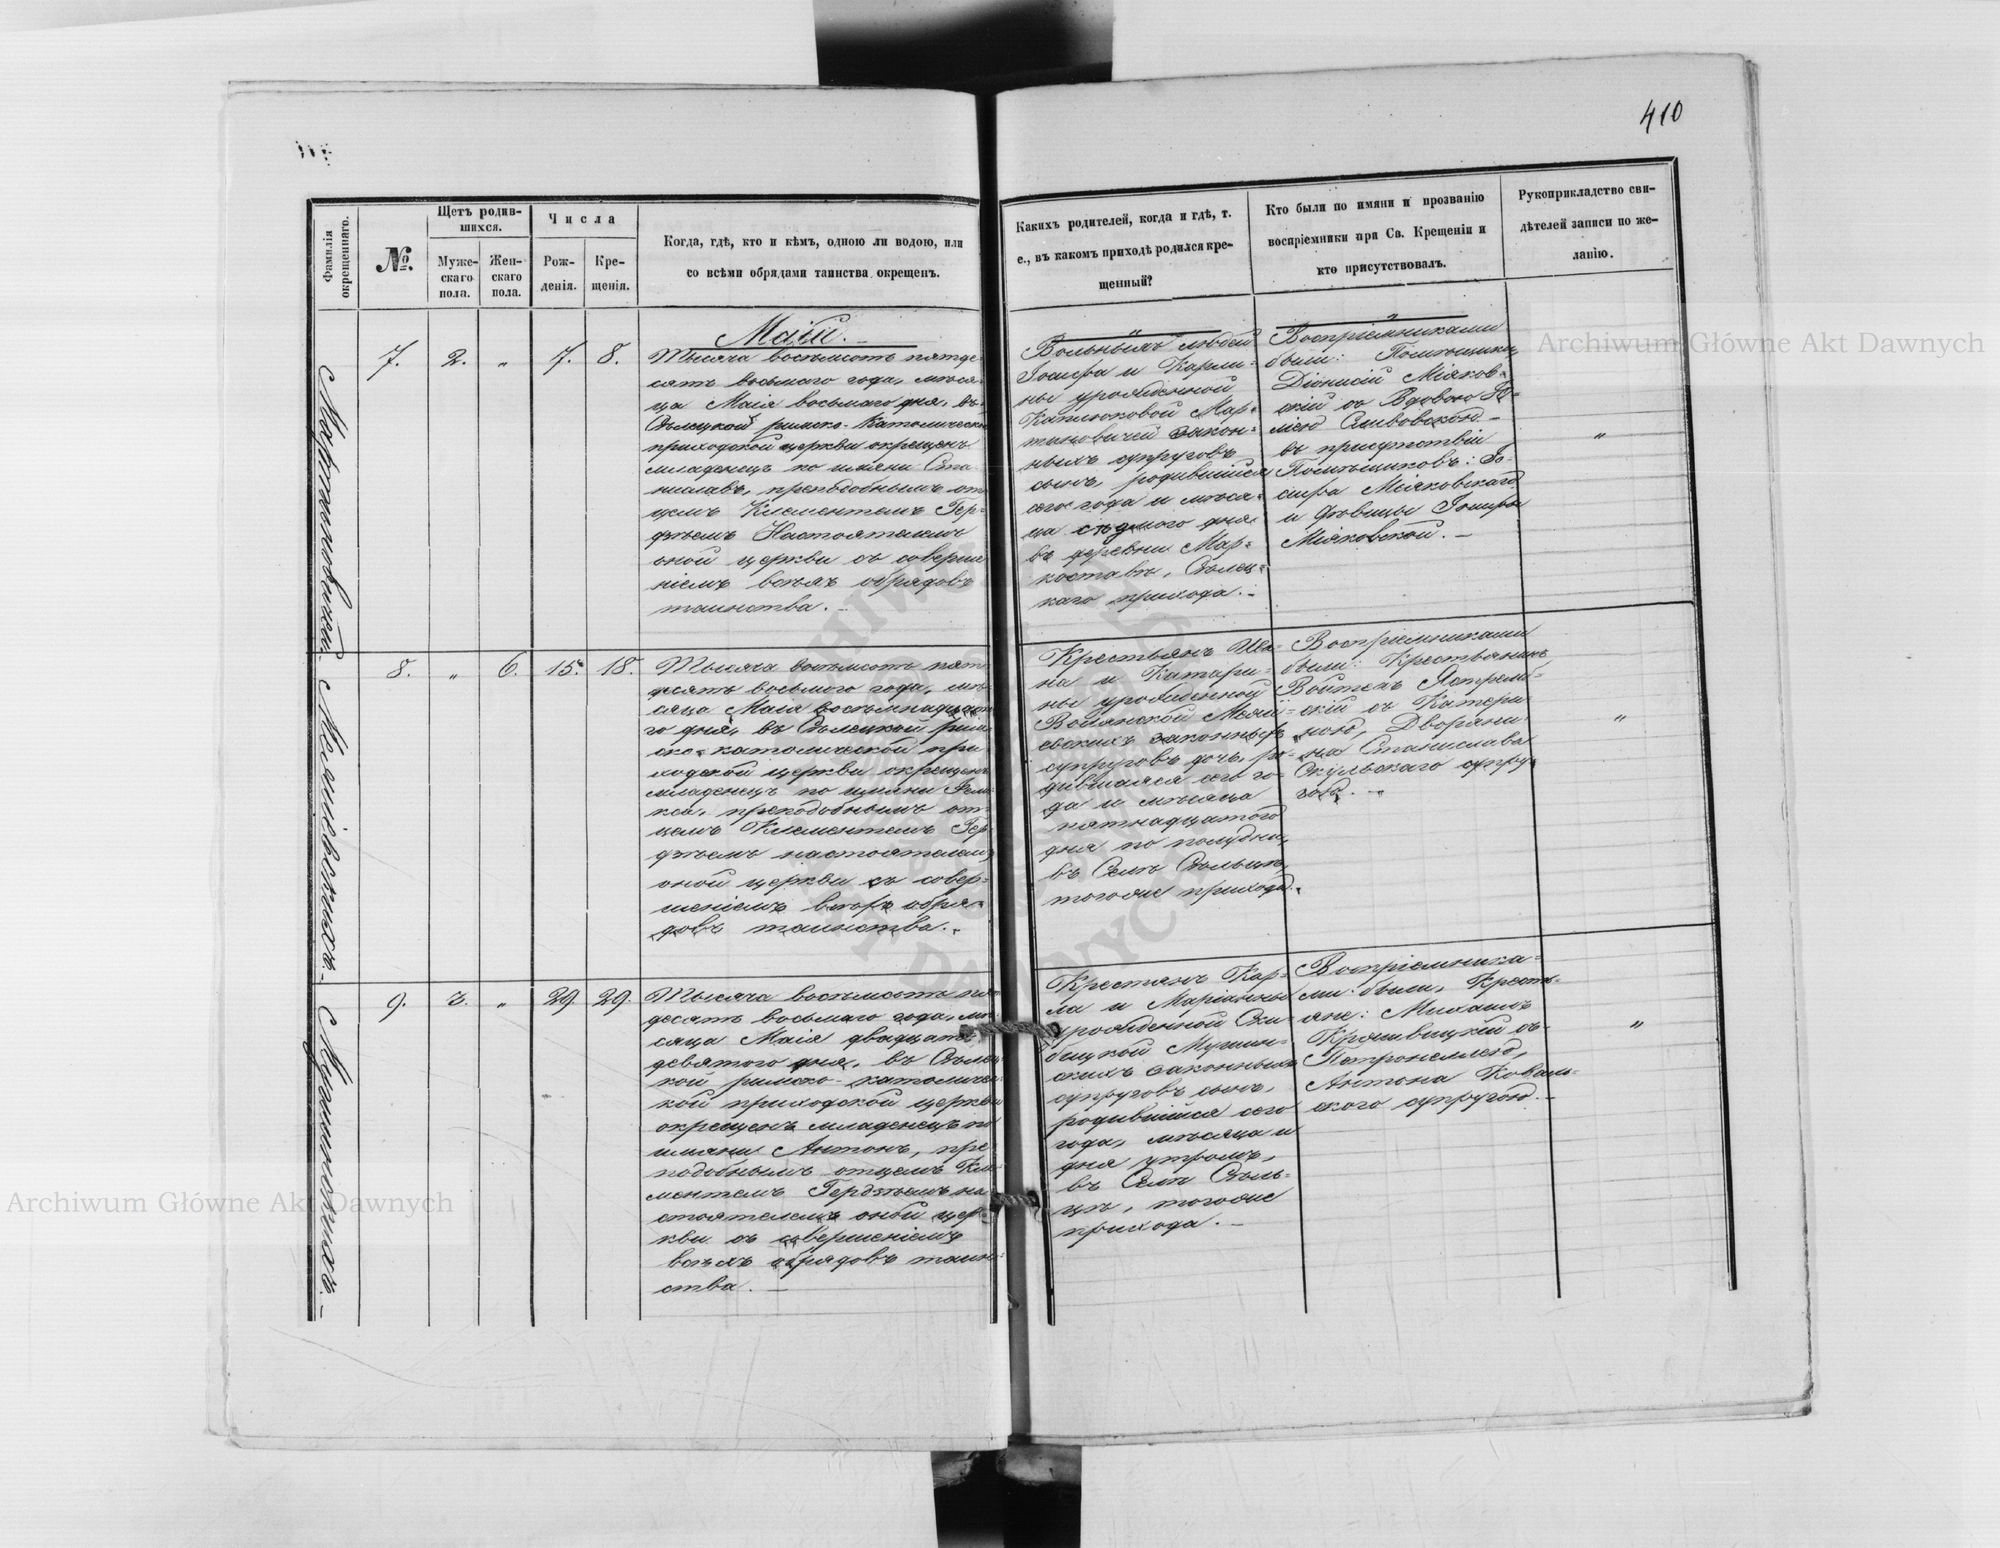 410
Фамилія окрещеннаго.
№.
Щетъ родив-
шихся.
Муже-
скаго
пола.
Жен-
скаго
пола.
Числа
Рож-
денія.
Кре-
щенія.
Когда, гдѣ, кто и кѣмъ, одною ли водою, или
со всѣми обрядами таинства окрещенъ.
Каких родителей, когда и гдѣ, т.
е., въ какомъ приходѣ родился кре-
щенный?
Кто были по имяни и прозванію
воспріемники при Св. Крещеніи и
кто присутствовалъ.
Рукоприкладство сви-
дѣтелей записи по же-
ланію.
Маій.
7. 2. „ 7. 8.
Тысяча восемьсотъ пятде-
сятъ восьмаго года, мѣся-
ца Маія восьмаго дня, въ
Сѣлецкой римско-Католической
приходской церкви окрещенъ
младенецъ по имяни Ста-
ниславъ, преподобнымъ от-
цемъ Клементемъ Гер-
дзѣемъ Настоятелемъ
оной церкви съ соверше-
ніемъ всѣхъ обрядовъ
таинства. –
Вольныхъ людей
Іосифа и Карли-
ны урожденной
Каплюковой Мар-
тиновичей закон-
ныхъ супруговъ
сынъ, родившійся
сего года и мѣся-
ца седмого дня
въ деревни Мар-
коставъ, Сѣлец-
каго прихода. –
Воспріемниками
были: Помѣщикъ
Діонисій Міяков-
скій съ Вдовою
Сливовскою –
въ присутствіи
Помѣщиковъ: Іо-
сифа Міяковскаго
и дѣвицы Іозифы
Міяковской. –
„
8. „ 6. 15. 18.
Тысяча восемьсотъ пят-
десятъ восьмого года, мѣ-
сяца Маія восемьнадцата-
го дня, въ Сѣлецкой рим-
ско-католической при-
ходской церкви окрещенъ
младенецъ по имяни
преподобнымъ от-
цемъ Клементемъ Гер-
дзѣемъ настоятелемъ
оной церкви съ совер-
шеніемъ всѣхъ обря-
довъ таинства. –
Крестьянъ Ива-
на и Катари-
ны урожденной
законныхъ
супруговъ дочь, ро-
дившаяся сего го-
да и мѣсяца
пятнадцатого
дня по полудни,
въ Селѣ Сѣльцѣ,
тогоже прихода. –
Воспріемниками
были: Крестьянинъ
Войтехъ Ястрем-
скій съ Катери-
ною, Дворяни-
на Станислава
Скульскаго супру-
гою. –
„
9. 3. „ 29. 29.
Тысяча восемьсотъ пят-
десятъ восьмаго года, мѣ-
сяца Маія двадцать
девятого дня, въ Сѣлец-
кой римско-католичес-
кой приходской церкви
окрещенъ младенецъ по
имяни Антонъ, пре-
подобнымъ отцемъ Кле-
ментемъ Гердзѣемъ на-
стоятелемъ оной цер-
кви съ совершеніемъ
всѣхъ обрядовъ таин-
ства. –
Крестянъ Кар-
ла и Маріанны
урожденной Ски-
бицкой Мушин-
скихъ законныхъ
супруговъ сынъ,
родившійся сего
года, мѣсяца и
дня утромъ,
въ Селѣ Сѣль-
цѣ, тогоже
прихода. –
Воспріемника-
ми были, Кресть-
яне: Михаилъ
съ
Петронеллею,
Антона Коваль-
ского супругою. –
„
Archiwum Główne Akt Dawnych
Archiwum Główne Akt Dawnych